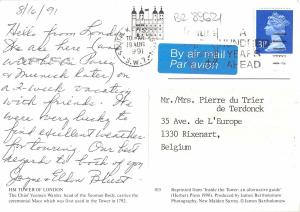 8/16/91
Hello from London
We are here (and
Munich later) on a
2 week vacation
with friends. We
were very lucky to
find excellent weather
for touring. Our best
regards to both of you
B2 89621
19 AUG
1991
S.W.1
YEAR
AHEAD
By air mail
Par avion
Mr./Mrs. Pierre du Trier
de Terdonck
35 Ave. de L'Europe
1330 Rixenart,
Belgium
HM TOWER OF LONDON
The Chief Yeoman Warder, head of the Yeoman Body, carries the
ceremonial Mace which was first used in the Tower in 1792.
Reprinted from 'Inside the Tower: an alternative guide'
(Herbert Press 1990). Produced by James Bartholomew
Photography, New Malden, Surrey. © James Bartholomew